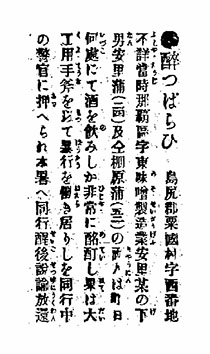 ●醉つぱらひ　島尻郡粟國村字西番地
不詳當時那覇區字東味噌製造業安里某の下
男安里蒲及仝棚原蒲の両人は日
何處にて酒を飲みしか非常に酩酊し果は大
工用手斧を以て暴行を働き居りしを同行中
の警官に押へられ本署へ同行醒後説諭放還